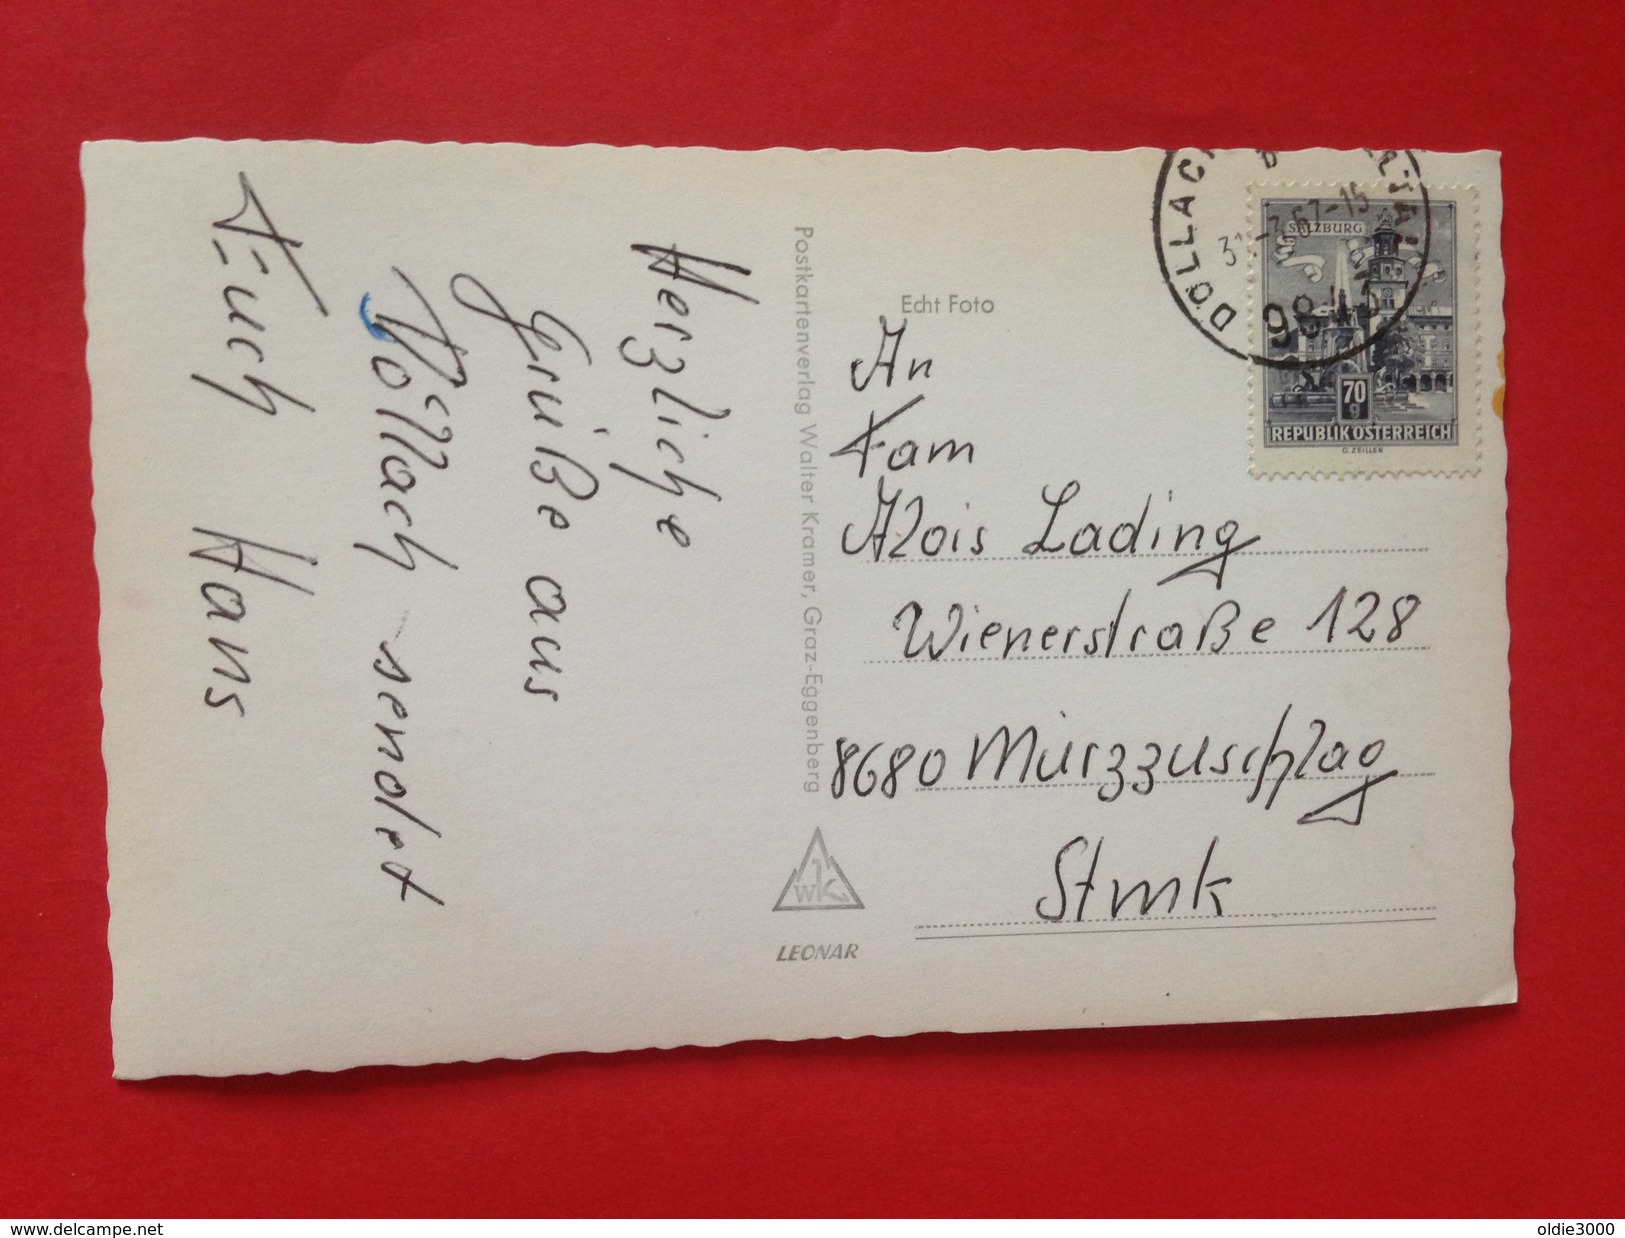 Herzliche
Grüße aus
Döllach sendet
Euch Hans
Postkartenverlag Walter Kramer, Graz-Eggenberg
Echt Foto
An
Fam
Alois Lading
Wienerstraße 128
8680 Mürzzuschlag
Stmk
WK
LEONAR
DÖLLACH
-3.67-15
9843
SALZBURG
70
g
REPUBLIK ÖSTERREICH
G. ZEILLER
www.delcampe.net
oldie3000